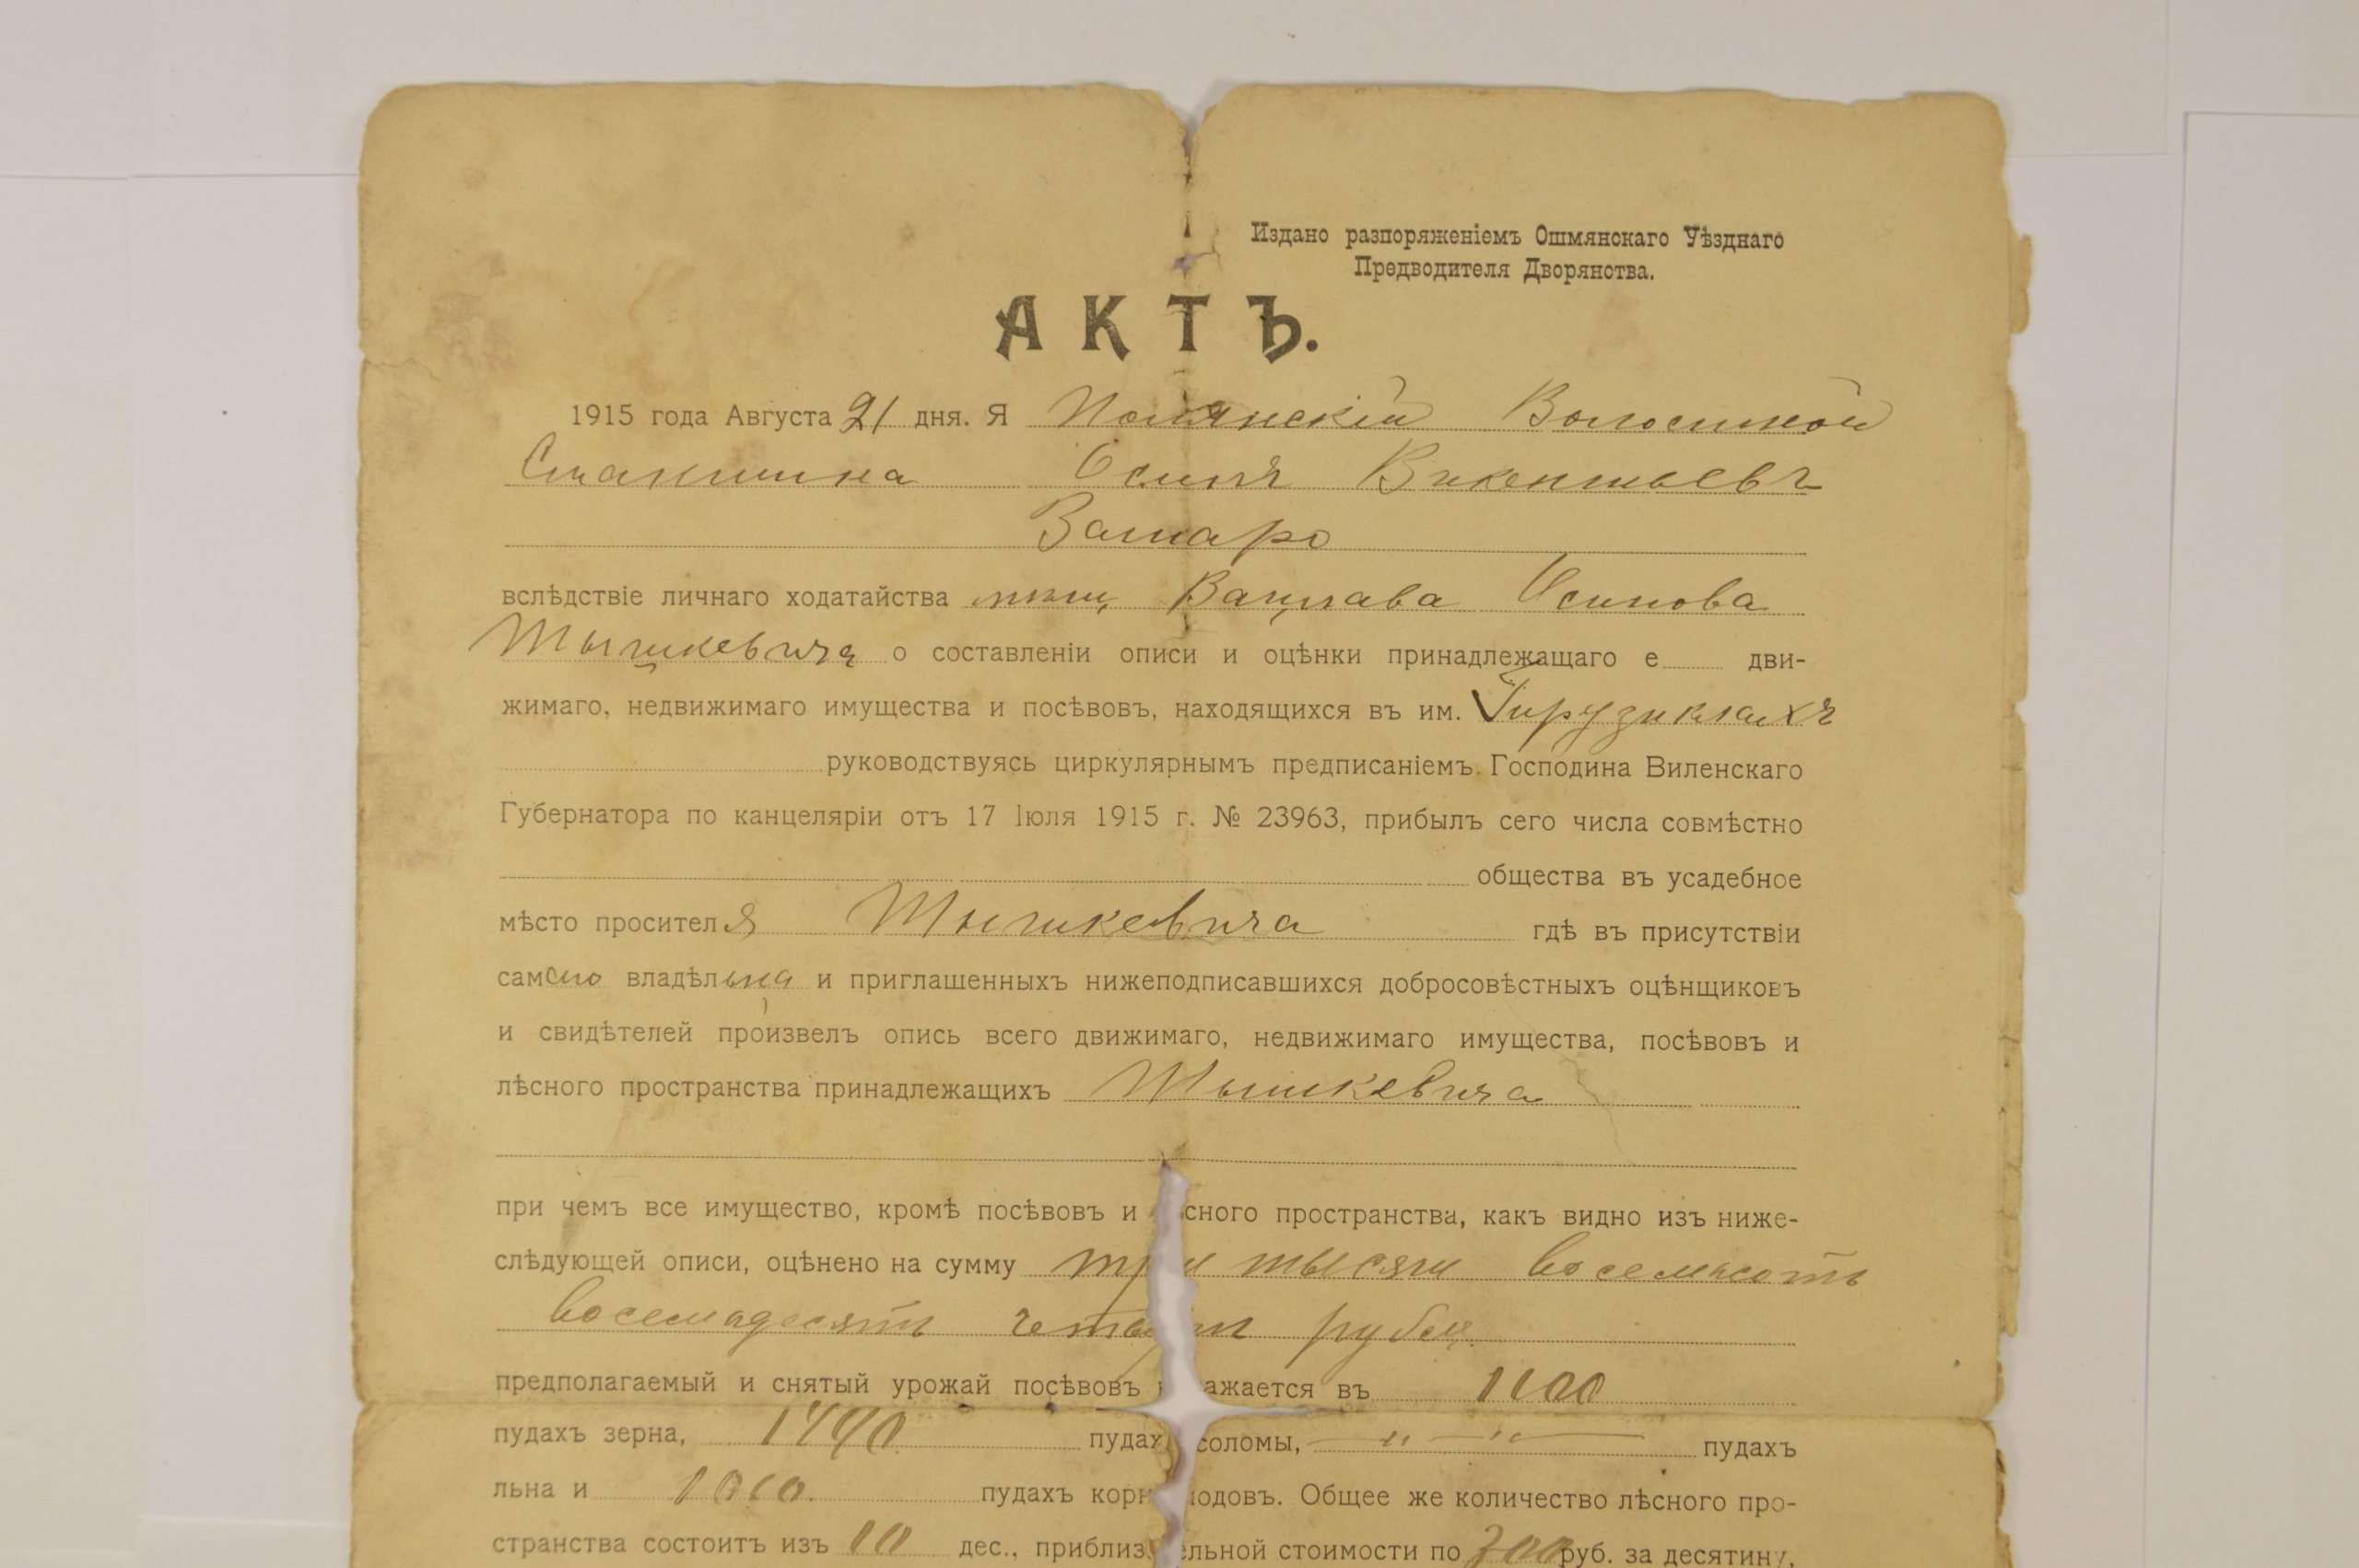 Издано разпоряженіемъ Ошмянскаго Уѣзднаго
Предводителя Дворянства.
АКТЪ.
1915 года Августа 21 дня. Я Полянскій Волостной
Старшина Осипъ Викентьевъ
вслѣдствіе личнаго ходатайства Вацлава Осипова
Тышкевича о составленіи описи и оцѣнки принадлежащаго е дви-
жимаго, недвижимаго имущества и посѣвовъ, находящихся въ им.
руководствуясь циркулярнымъ предписаніемъ Господина Виленскаго
Губернатора по канцеляріи отъ 17 Іюля 1915 г. № 23963, прибылъ сего числа совмѣстно
общества въ усадебное
мѣсто просителя Тышкевича гдѣ въ присутствіи
самого владѣльца и приглашенныхъ нижеподписавшихся добросовѣстныхъ оцѣнщиковъ
и свидѣтелей произвелъ опись всего движимаго, недвижимаго имущества, посѣвовъ и
лѣсного пространства принадлежащихъ Тышкевича
при чемъ все имущество, кромѣ посѣвовъ и сного пространства, какъ видно изъ ниже-
слѣдующей описи, оцѣнено на сумму три тысячи восемьсотъ
восемьдесятъ четыри рубля.
предполагаемый и снятый урожай посѣвовъ ажается въ 1100
пудахъ зерна, 1440 пудахъ соломы, — " — " — пудахъ
льна и пудахъ корн лодовъ. Общее же количество лѣсного про-
странства состоитъ изъ 10 дес., приблиз ельной стоимости по 300 руб. за десятину,